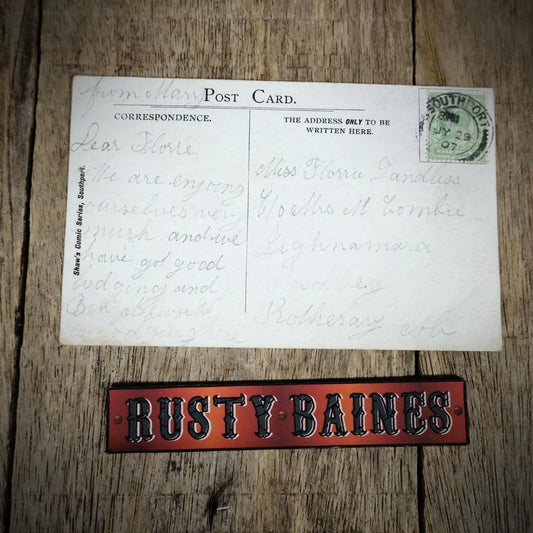 from Mary
POST CARD.
CORRESPONDENCE.
THE ADDRESS ONLY TO BE
WRITTEN HERE.
SOUTHPORT
JY 29
07
Dear Florrie
We are enjoying
ourselves very
much and we
have got good
lodgings and
Miss Florrie Landless
C/o Mrs M Combie
Ardbeg
Rothesay
Shaw's Comic Series, Southport.
RUSTY BAINES